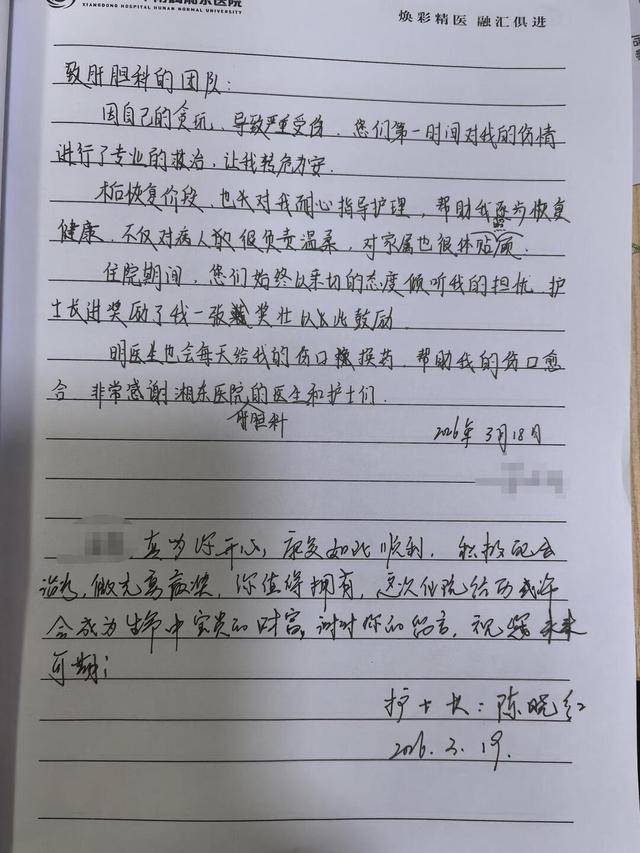 XIANGDONG HOSPITAL HUNAN NORMAL UNIVERSITY
焕彩精医 融汇俱进
致肝胆科的团队：
因自己的贪玩、导致严重受伤、您们第一时间对我的伤情
进行了专业的救治，让我转危为安.
术后恢复阶段，也来对我耐心指导护理，帮助我逐步恢复
健康、不仅对病人很负责温柔、对家属也很体贴照顾.
住院期间，您们始终以亲切的态度倾听我的担忧、护
士长进奖励了我一张奖壮以此鼓励.
明医生也会每天给我的伤口换药、帮助我的伤口愈
合、非常感谢湘东医院肝胆科的医生和护士们.
2026年3月18日
真为你开心，康复如此顺利，积极配合
治疗，做完喜最奖，你值得拥有，这次住院经历或许
会成为生命中宝贵的财富，谢谢你的留言，祝未来
可期；
护士长：陈晓红
2026.3.19.